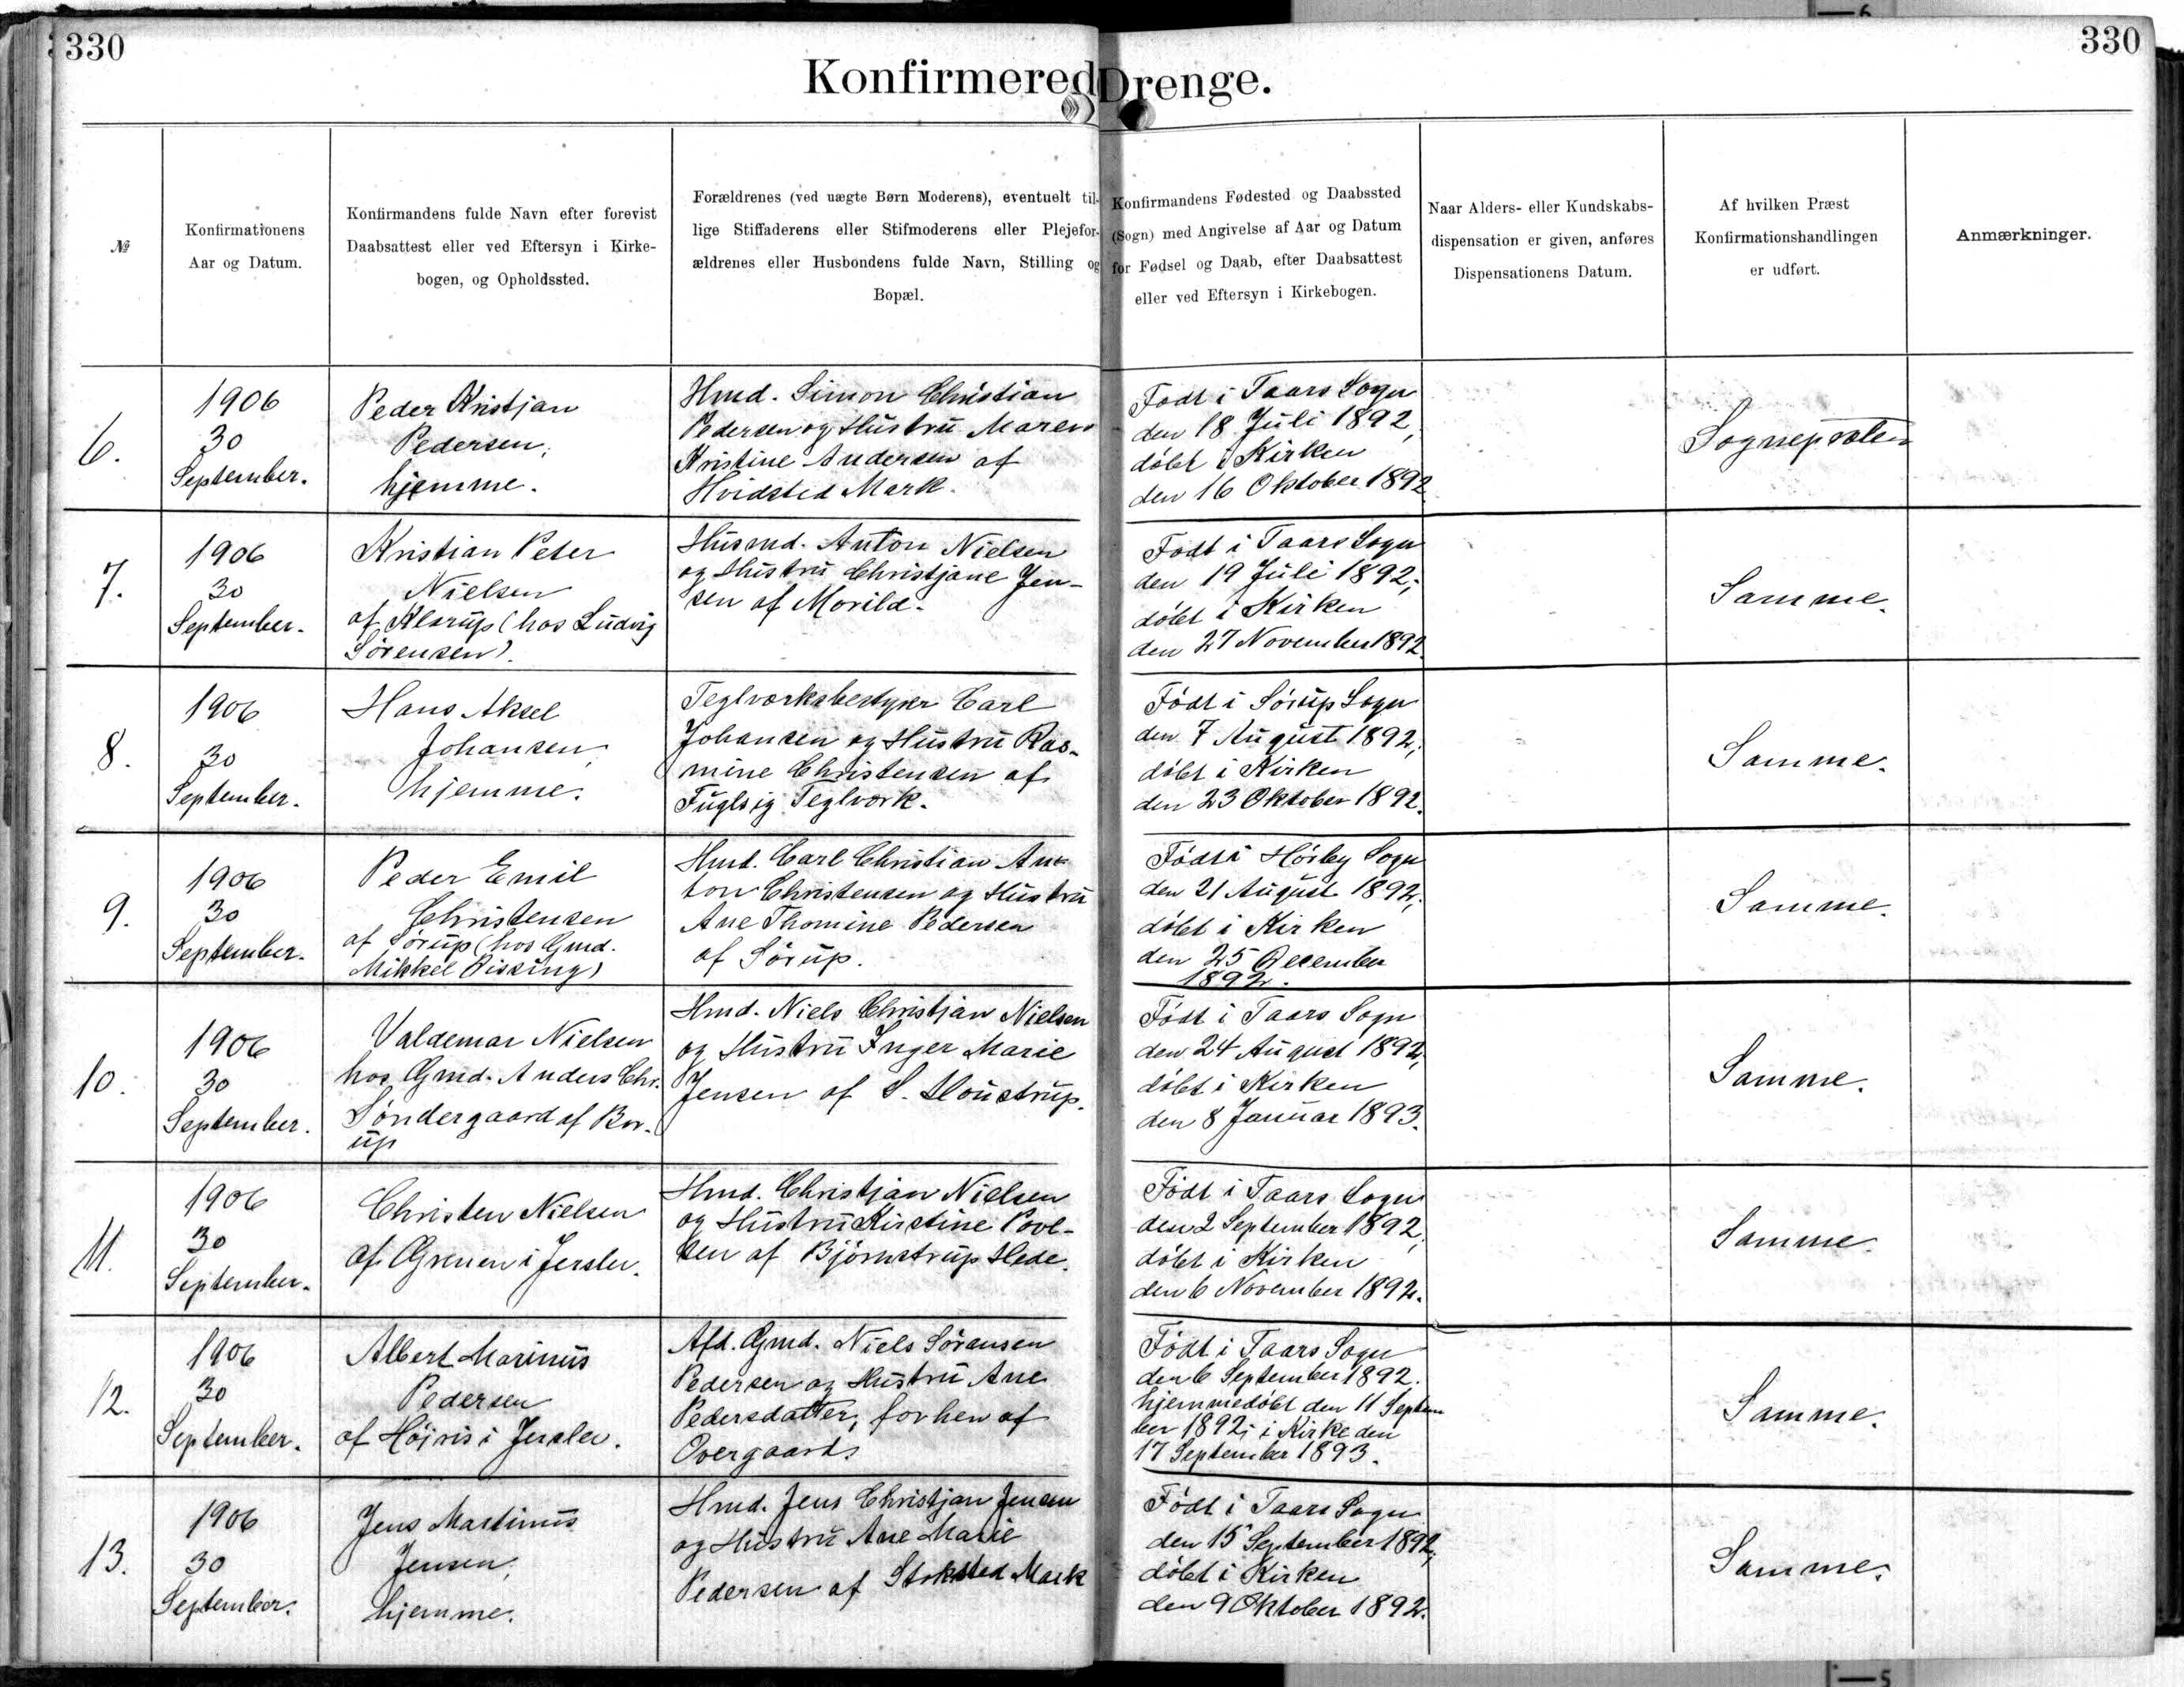 330
330
Konfirmered Drenge.
№
Konfirmationens
Aar og Datum.
Konfirmandens fulde Navn efter forevist
Daabsattest eller ved Eftersyn i Kirke-
bogen, og Opholdssted.
Forældrenes (ved uægte Børn Moderens), eventuelt til-
lige Stiffaderens eller Stifmoderens eller Plejefor-
ældrenes eller Husbondens fulde Navn, Stilling og
Bopæl.
Konfirmandens Fødested og Daabssted
(Sogn) med Angivelse af Aar og Datum
for Fødsel og Daab, efter Daabsattest
eller ved Eftersyn i Kirkebogen.
Naar Alders- eller Kundskabs-
dispensation er given, anføres
Dispensationens Datum.
Af hvilken Præst
Konfirmationshandlingen
er udført.
Anmærkninger.
6.
1906
30
September.
Peder Kristjan
Pedersen,
hjemme.
Hmd. Simon Christian
Pedersen og Hustru Maren
Kristine Andersen af
Hvidsted Mark.
Født i Taars Sogn
den 18 Juli 1892,
døbt i Kirken
den 16 Oktober 1892
Sognepræsten
7.
1906
30
September.
Kristian Peter
Nielsen
af Klarup (hos Ludvig
Sørensen).
Husmd. Anton Nielsen
og Hustru Christjane Jen-
sen af Morild.
Født i Taars Sogn
den 19 Juli 1892;
døbt i Kirken
den 27 November 1892.
Samme.
8.
1906
30
September.
Hans Aksel
Johansen,
hjemme.
Teglværksbestyrer Carl
Johansen og Hustru Ras-
mine Christensen af
Fuglsig Teglværk.
Født i Sørup Sogn
den 7 August 1892,
døbt i Kirken
den 23 Oktober 1892.
Samme.
9.
1906
30
September.
Peder Emil
Christensen
af Sørup (hos Gmd.
Mikkel Pissing)
Hmd. Carl Christian An-
ton Christensen og Hustru
Ane Thomine Pedersen
af Sørup.
Født i Hørby Sogn
den 21 August 1892,
døbt i Kirken
den 25 December
1892.
Samme.
10.
1906
30
September.
Valdemar Nielsen
hos Gmd. Anders Chr.
Søndergaard af Bor-
up
Hmd. Niels Christjan Nielsen
og Hustru Inger Marie
Jensen af S. Houstrup.
Født i Taars Sogn
den 24 August 1892,
døbt i Kirken
den 8 Januar 1893.
Samme.
11.
1906
30
September.
Christen Nielsen
af Grenen i Jerslev.
Hmd. Christjan Nielsen
og Hustru Kirstine Povl-
sen af Bjørnstrup Hede.
Født i Taars Sogn
den 2 September 1892,
døbt i Kirken
den 6 November 1892.
Samme.
12.
1906
30
September.
Albert Marinus
Pedersen
af Højris i Jerslev.
Afd. Gmd. Niels Sørensen
Pedersen og Hustru Ane
Pedersdatter, forhen af
Overgaard.
Født i Taars Sogn
den 6 September 1892.
hjemmedøbt den 11 Septem
ber 1892; i Kirke den
17 September 1893.
Samme.
13.
1906
30
September.
Jens Martinus
Jensen,
hjemme.
Hmd. Jens Christjan Jensen
og Hustru Ane Marie
Pedersen af Stoksted Mark
Født i Taars Sogn
den 15 September 1892,
døbt i Kirken
den 9 Oktober 1892.
Samme.